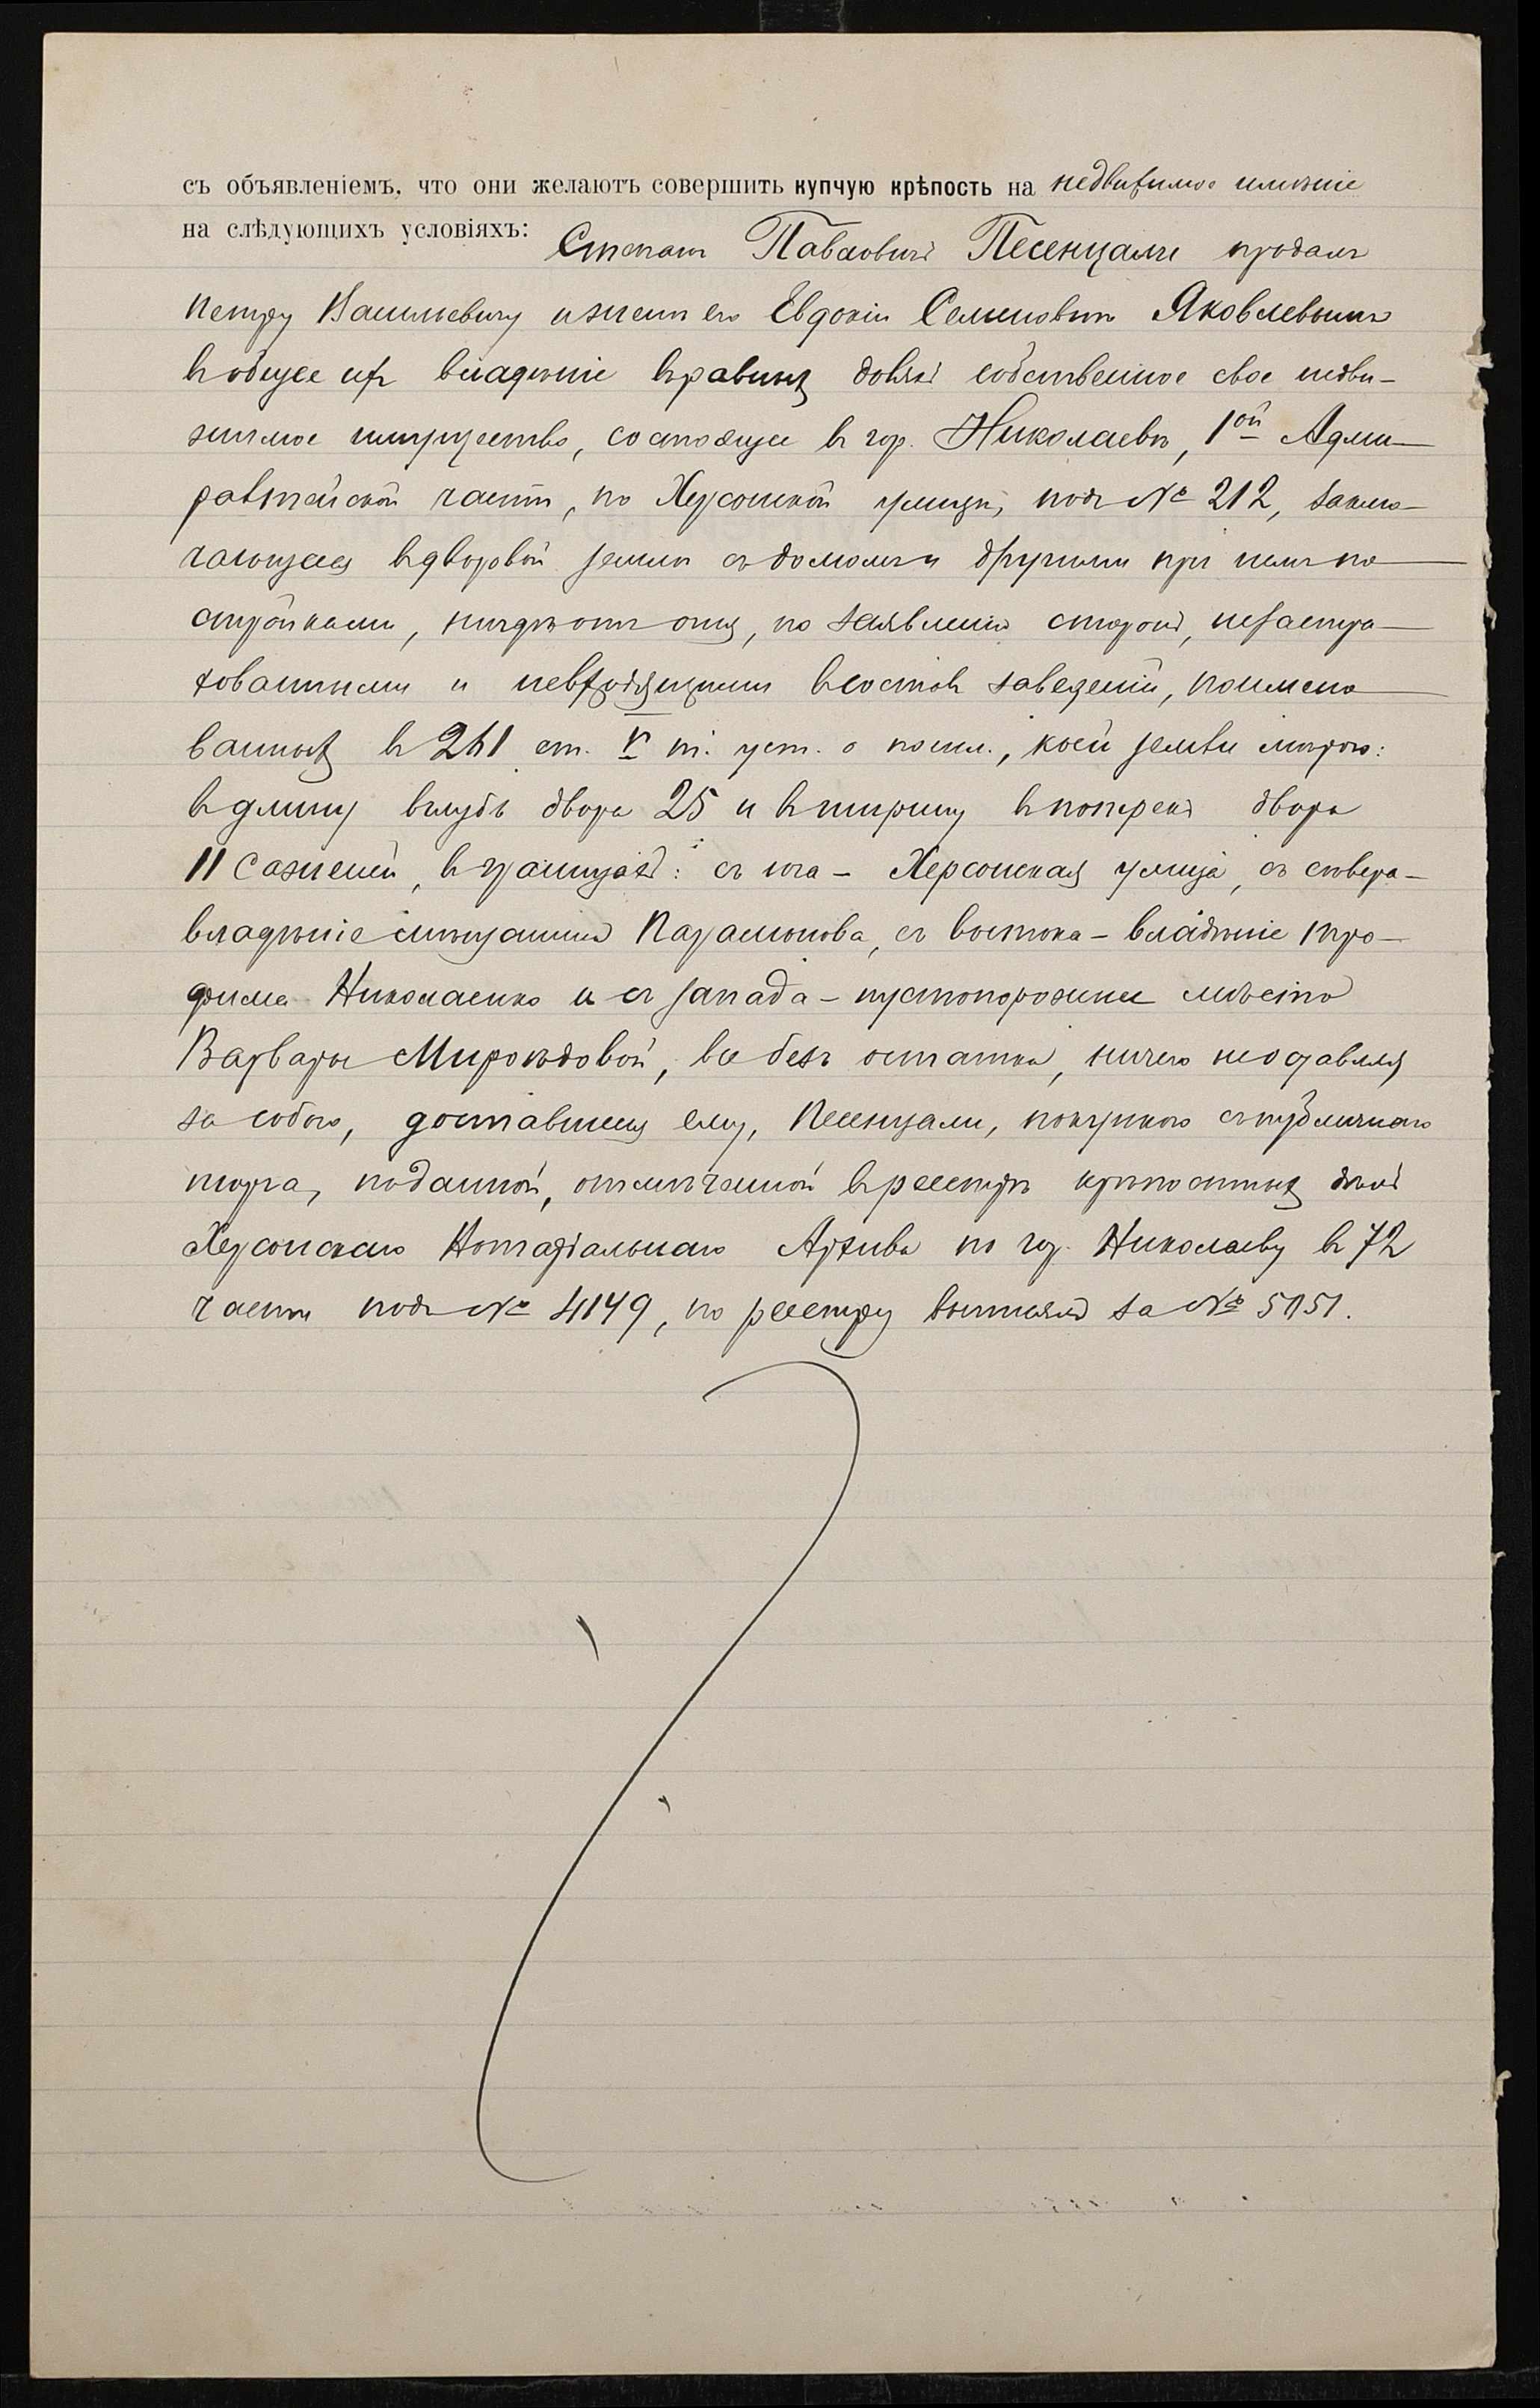 съ объявленіемъ, что они желаютъ совершить купчую крѣпость на недвижимое имѣніе
на слѣдующихъ условіяхъ: Степанъ Павловичъ Песенцали продалъ
Петру Васильевичу и женѣ его Евдокіи Семеновнѣ Яковлевымъ
въ общее ихъ владѣніе въ равныхъ доляхъ собственное свое недви-
жимое имущество, состоящее въ гор. Николаевѣ, 1ой Адми-
ралтейской части, по Херсонской улицѣ, подъ № 212, заклю-
чающееся въ дворовой землѣ съ домомъ и другими при немъ по-
стройками, нигдѣ отъ огня, по заявленію сторонъ, незастра-
хованными и невходящими въ составъ заведеній, поимено-
ванныхъ въ 261 ст. V т. уст. о пошл., коей земли мѣрою:
въ длину вглубь двора 25 и въ ширину въ поперекъ двора
11 сажений, въ границахъ: съ юга - Херсонская улица, съ сѣвера -
владѣніе мѣщанина Парамонова, съ востока - владѣніе Тро-
фима Николаенко и съ запада - пустопорожнее мѣсто
Варвары Мироѣдовой, все безъ остатка, ничего не оставляя
за собою, доставшееся ему, Песенцали, покупкою съ публичнаго
торга, по данной, отмѣченной въ реестрѣ крѣпостныхъ дѣлъ
Херсонскаго Нотаріальнаго Архива по гор. Николаеву въ 72
части подъ № 4149, по реестру выписей за № 5151.